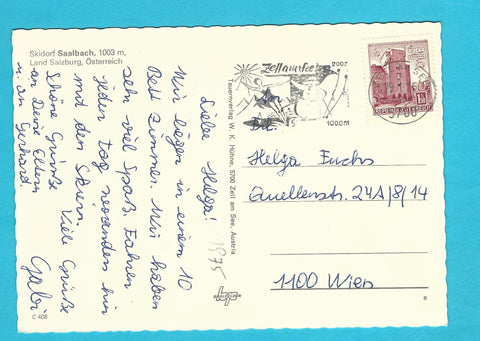 Skidorf Saalbach, 1003 m,
Land Salzburg, Österreich
Liebe Helga!
Wir liegen in einem 10
Bett Zimmer. Wir haben
sehr viel Spaß. Fahren
jeden Tag woanders hin
mit den Skiern.
Schöne Grüße
an Deine Eltern
u. an Gerhard.
Viele Grüße
Gabi
C 408
1975
Tauernverlag W. K. Hühne, 5700 Zell am See, Austria
Zell am See
2000
1000m
5700
REPUBLIK ÖSTERREICH
Helga Fuchs
Quellenstr. 24A/8/14
1100 Wien
bp